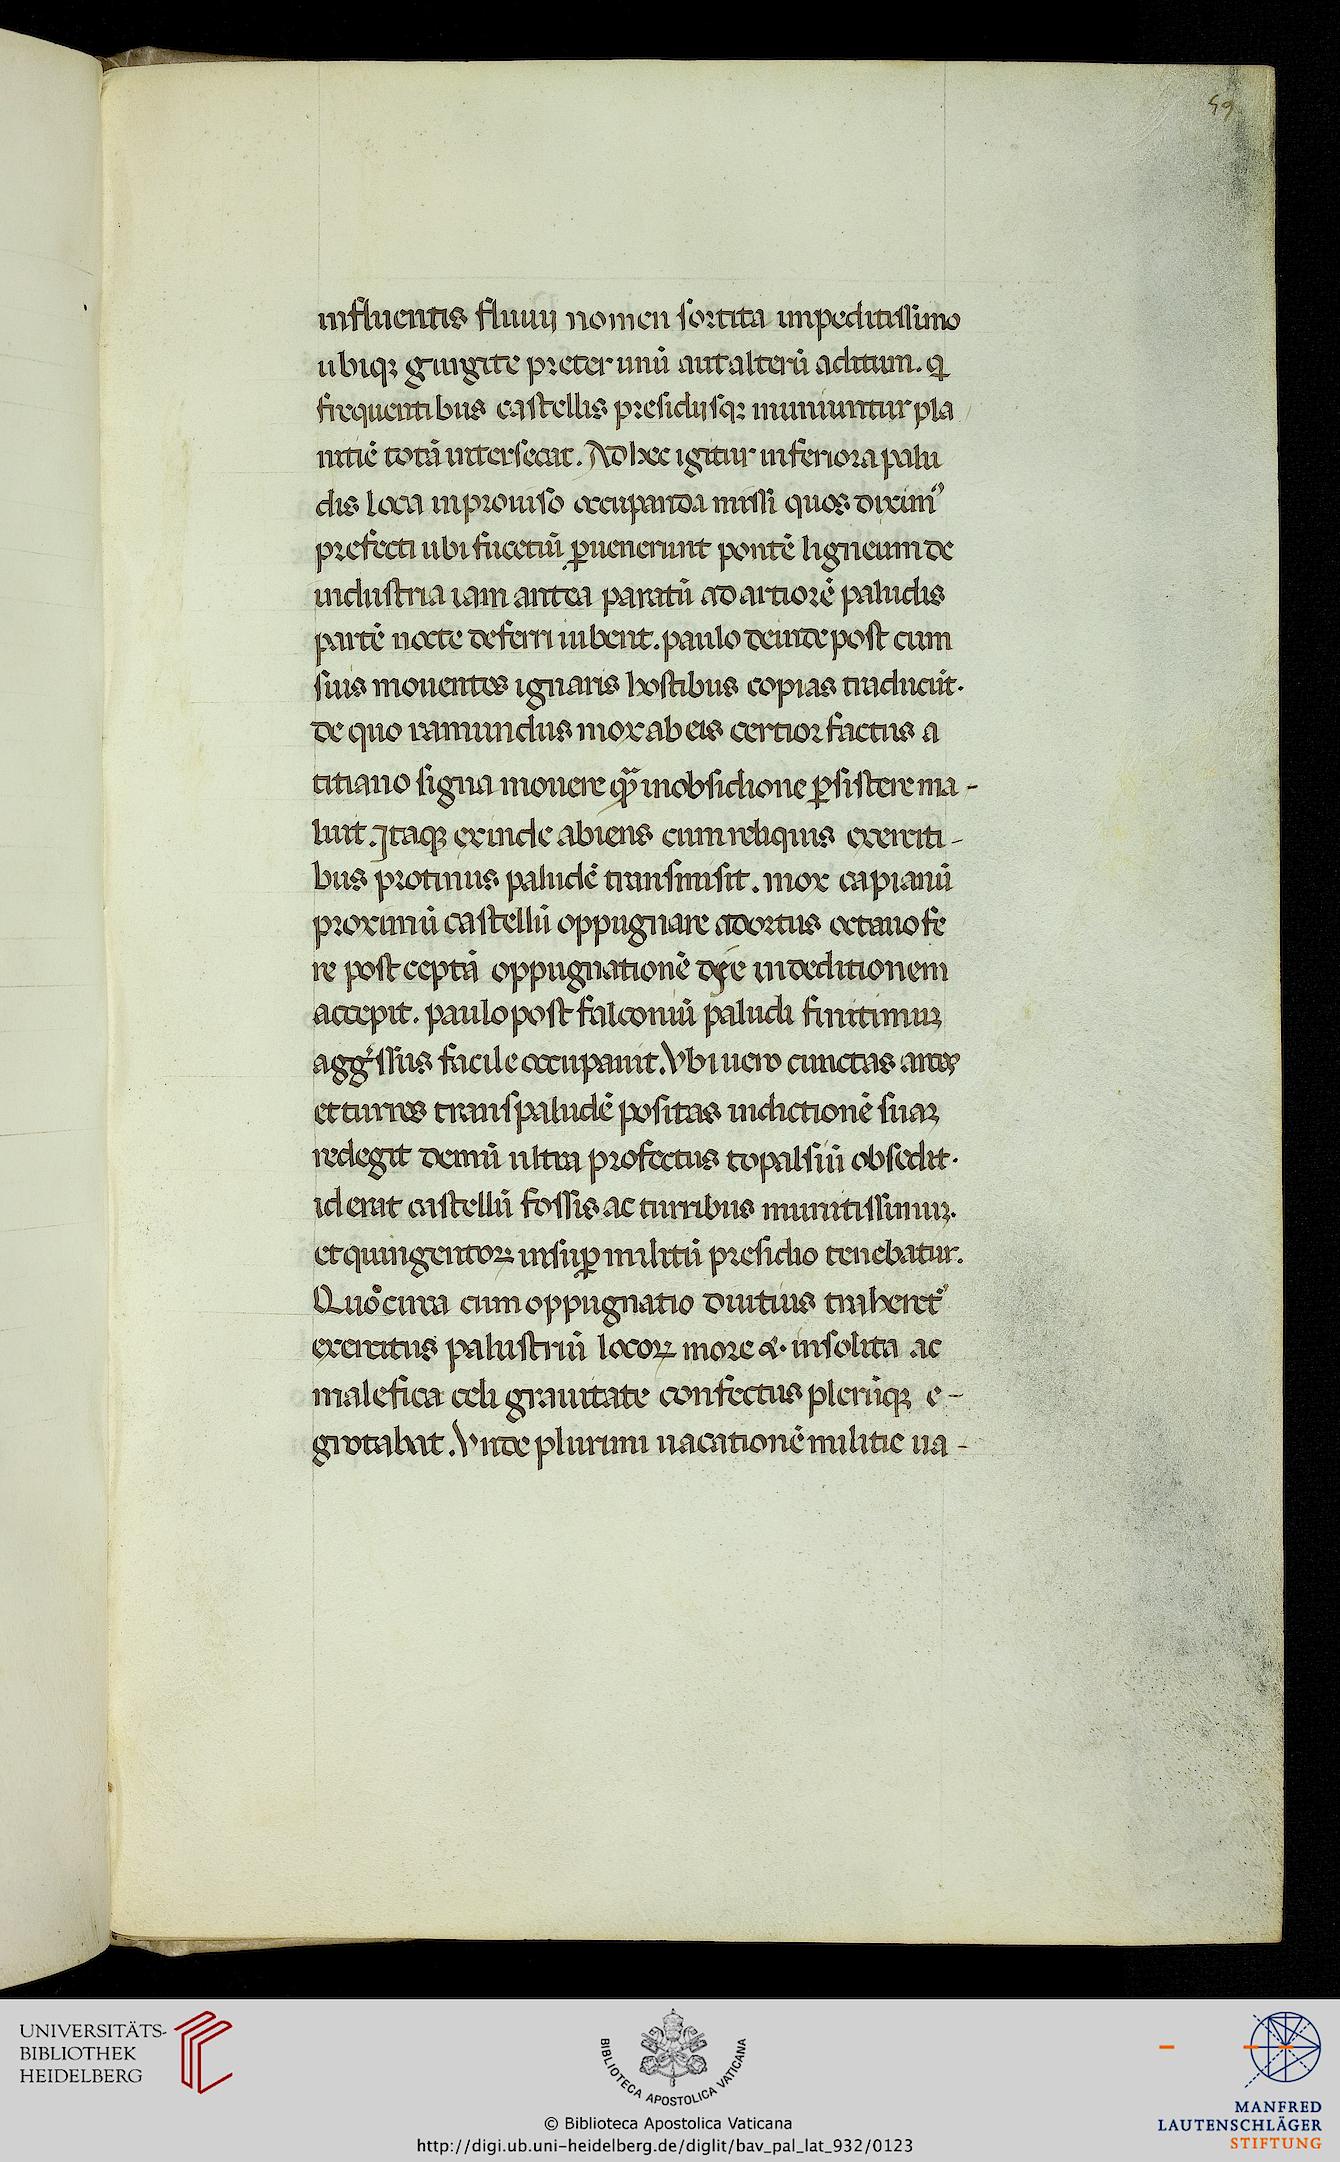 59
influentis fluuij nomen sortita impeditissimo
ubiqꝫ gurgite preter unū aut alterū aditum. q̄
frequentibus castellis presidijsqꝫ muniuntur pla
nitiē totā intersecat. Ad hec igitur inferiora palu
dis loca inprouiso occupanda missi quos diximꝰ
prefecti ubi fucetiū ꝑuenerunt pontē ligneum de
industria iam antea paratū ad artiorē paludis
partē nocte deferri iubent. paulo deinde post cum
suis mouentes ignaris hostibus copias traducūt.
de quo ramundus mox ab eis certior factus a
titiano signa mouere qᷓꝫ in obsidione ꝑsistere ma-
luit. Itaqꝫ exinde abiens cum reliquis exerciti-
bus protinus paludē transmisit. mox capianū
proximū castellū oppugnare adortus octauo fe
re post ceptā oppugnationē die in deditionem
accepit. paulo post falconiū paludi finitimuꝫ
aggͥssus facile occupauit. Vbi uero cunctas arces
et turres trans paludē positas in dictionē suaꝫ
redegit demū ultra profectus topalsiū obsedit.
id erat castellū fossis ac turribus munitissimuꝫ.
et quingentoꝝ insuꝑ militū presidio tenebatur.
Quocirca cum oppugnatio diutius traheret᷑
exercitus palustriū locoꝝ more &. insolita ac
malefica celi grauitate confectus plerūqꝫ e-
grotabat. Vnde plurimi uacationē militie ua-
UNIVERSITÄTS-
BIBLIOTHEK
HEIDELBERG
BIBLIOTECA APOSTOLICA VATICANA
© Biblioteca Apostolica Vaticana
http://digi.ub.uni-heidelberg.de/diglit/bav_pal_lat_932/0123
MANFRED
LAUTENSCHLÄGER
STIFTUNG